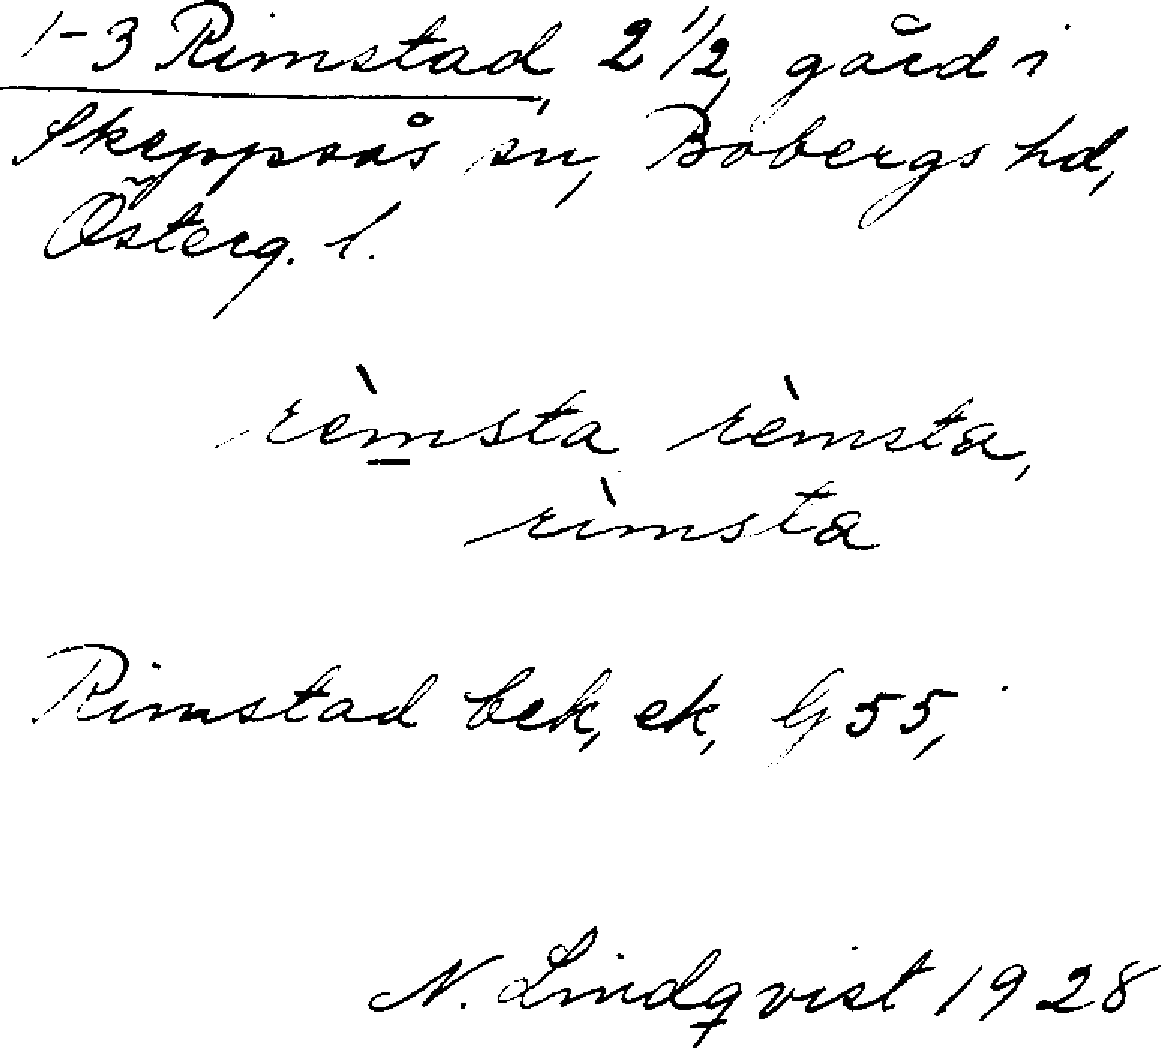 1-3 Rimstad, 2 1/2 gård i
Skeppsås sn, Bobergs hd,
Österg. l.
rèmsta rèmsta,
rìmsta
Rimstad bek, ek, G 55,
N. Lindqvist 1928